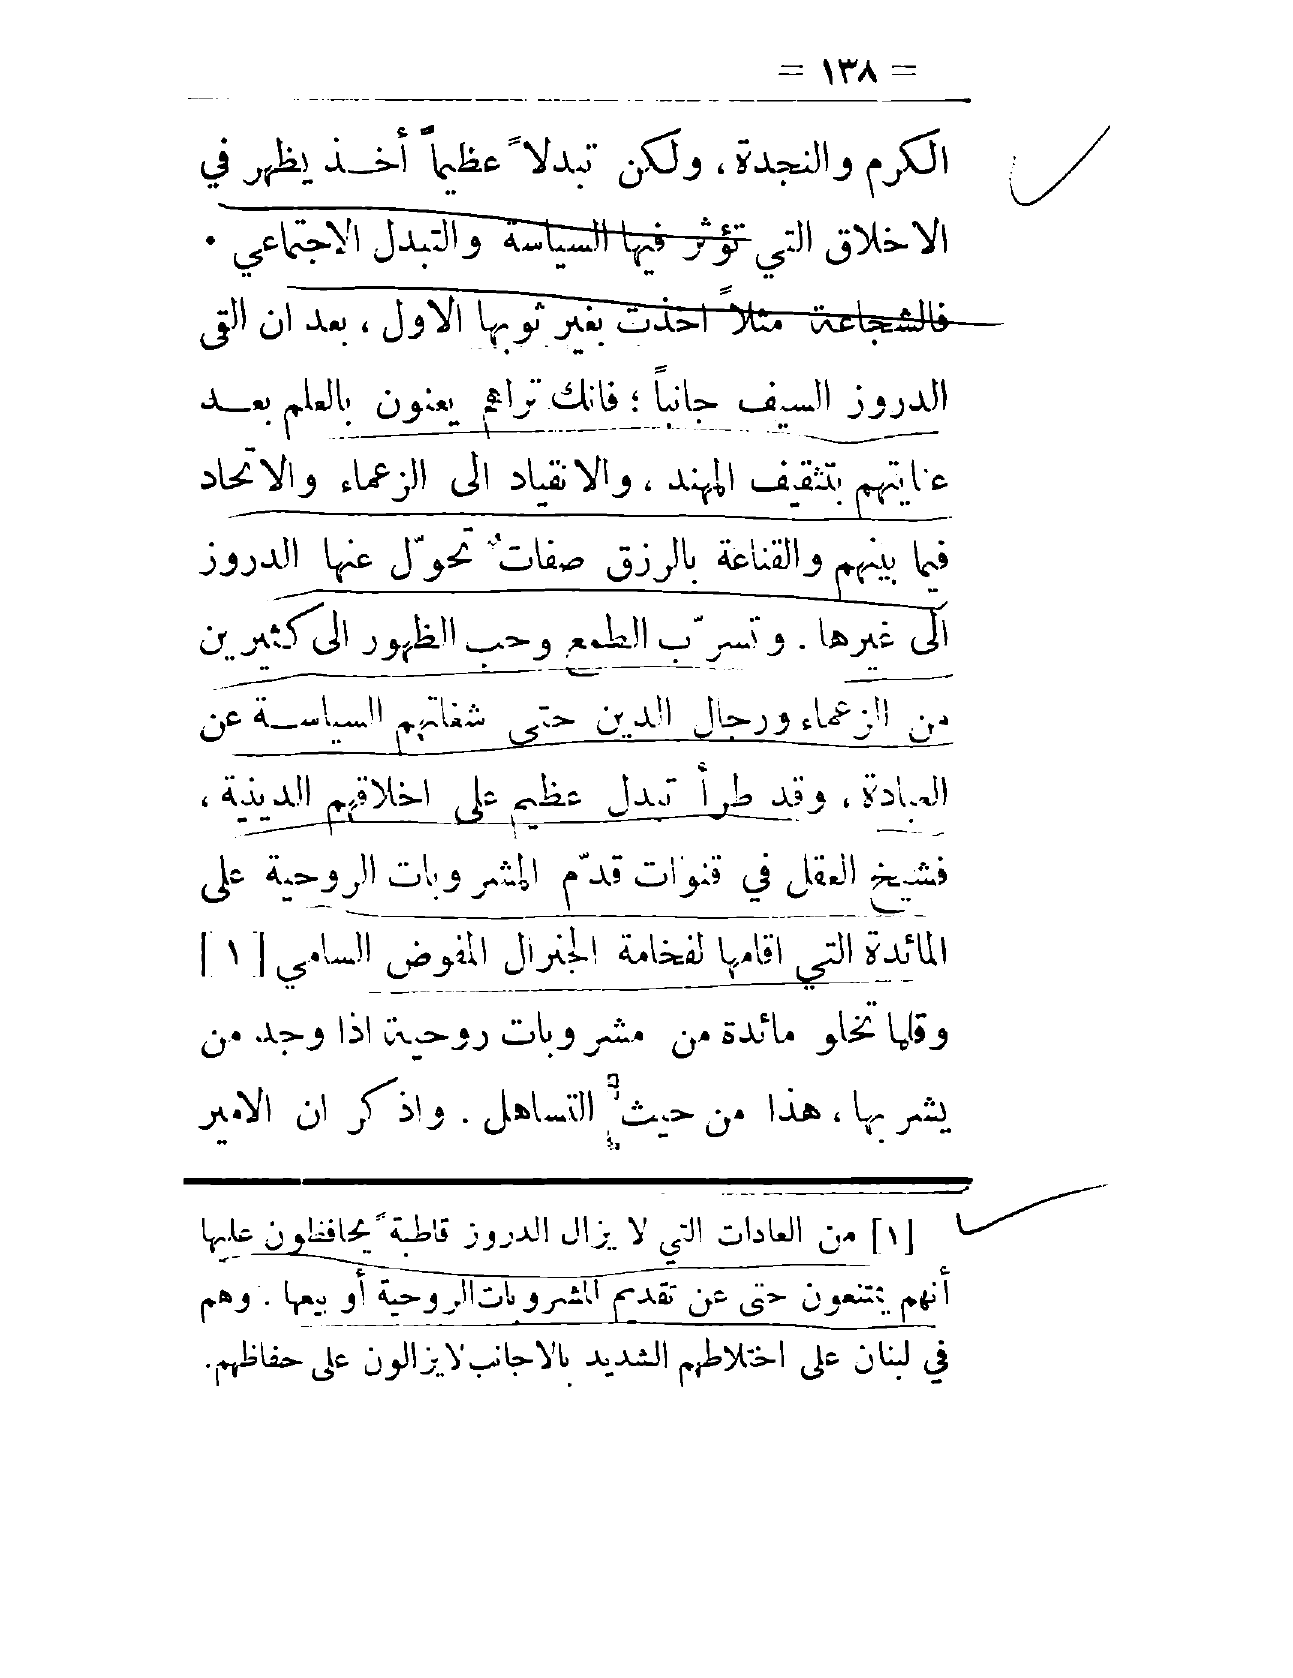 = ١٣٨ =
الكرم والنجدة ، ولكن تبدلاً عظيماً أخـــذ يظهر في
الاخلاق التي تؤثر فيها السياسة والتبدل الاجتماعي .
فالشجاعة مثلاً اخذت بغير ثوبها الاول ، بعد ان القى
الدروز السيف جانباً ؛ فانك تراهم يعنون بالعلم بعـــد
عنايتهم بتثقيف المهند ، والانقياد الى الزعماء والاتحاد
فيما بينهم والقناعة بالرزق صفات تحوّل عنها الدروز
الى غيرها . وتسرّب الطمع وحب الظهور الى كثيرين
من الزعماء ورجال الدين حتى شغلتهم السياســة عن
العبادة ، وقد طرأ تبدل عظيم على اخلاقهم الدينية ،
فشيخ العقل في قنوات قدّم المشروبات الروحية على
المائدة التي اقامها لفخامة الجنرال المفوض السامي [ ١ ]
وقلما تخلو مائدة من مشروبات روحية اذا وجد من
يشربها ، هذا من حيث التساهل . واذكر ان الامير
[١] من العادات التي لا يزال الدروز قاطبةً يحافظون عليها
أنهم يمتنعون حتى عن تقديم المشروبات الروحية أو بيعها . وهم
في لبنان على اختلاطهم الشديد بالاجانب لا يزالون على حفاظهم.